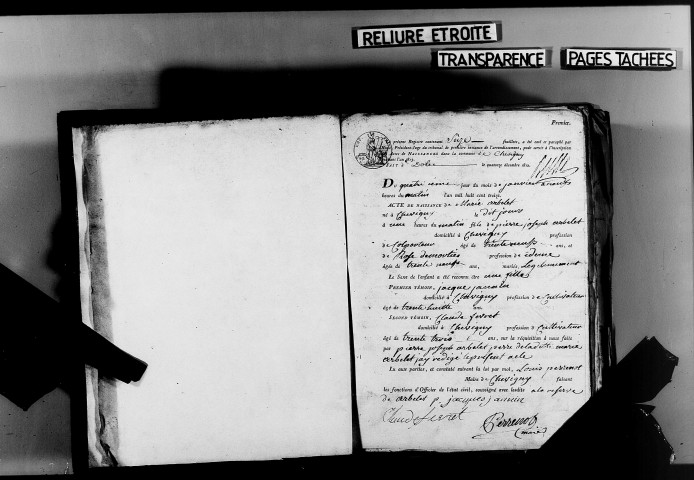 RELIURE ETROITE
TRANSPARENCE
PAGES TACHÉES
Premier.
présent Registre contenant Seize feuillets, a été coté et paraphé par
Président-Juge du tribunal de première instance de l'arrondissement, pour servir à l'inscription
actes de NAISSANCES dans la commune de Chevigny
l'an 1813.
FAIT à Dole le quatorze décembre 1812.
Du quatrième jour du mois de janvier à neuf
heures du matin l'an mil huit cent treize.
ACTE DE NAISSANCE de Marie arbelet
né à Chevigny le dit jour
à une heures du matin fille de pierre joseph arbelet
domicilié à Chevigny profession
de colporteur âgé de trente neuf ans, et
de Rose profession de idem
âgée de trente neuf ans, mariés Légitimement
Le Sexe de l'enfant a été reconnu être une fille
PREMIER TÉMOIN, jacque
domicilié à Chevigny profession de Cultivateur
âgé de trente huit ans.
SECOND TÉMOIN, Claude ferret
domicilié à Chevigny profession de Cultivateur
âgé de trente trois ans, sur la réquisition à nous faite
par pierre joseph arbelet, perre de la ditte marie
arbelet jay rédigé le présent acte
Lu aux parties, et constaté suivant la loi par moi, Louis perrenot
Maire de Chevigny faisant
les fonctions d'Officier de l'état civil, soussigné avec lesdits à la reserve
de arbelet p. jacques
Claude ferret
Perrenot
(maire)